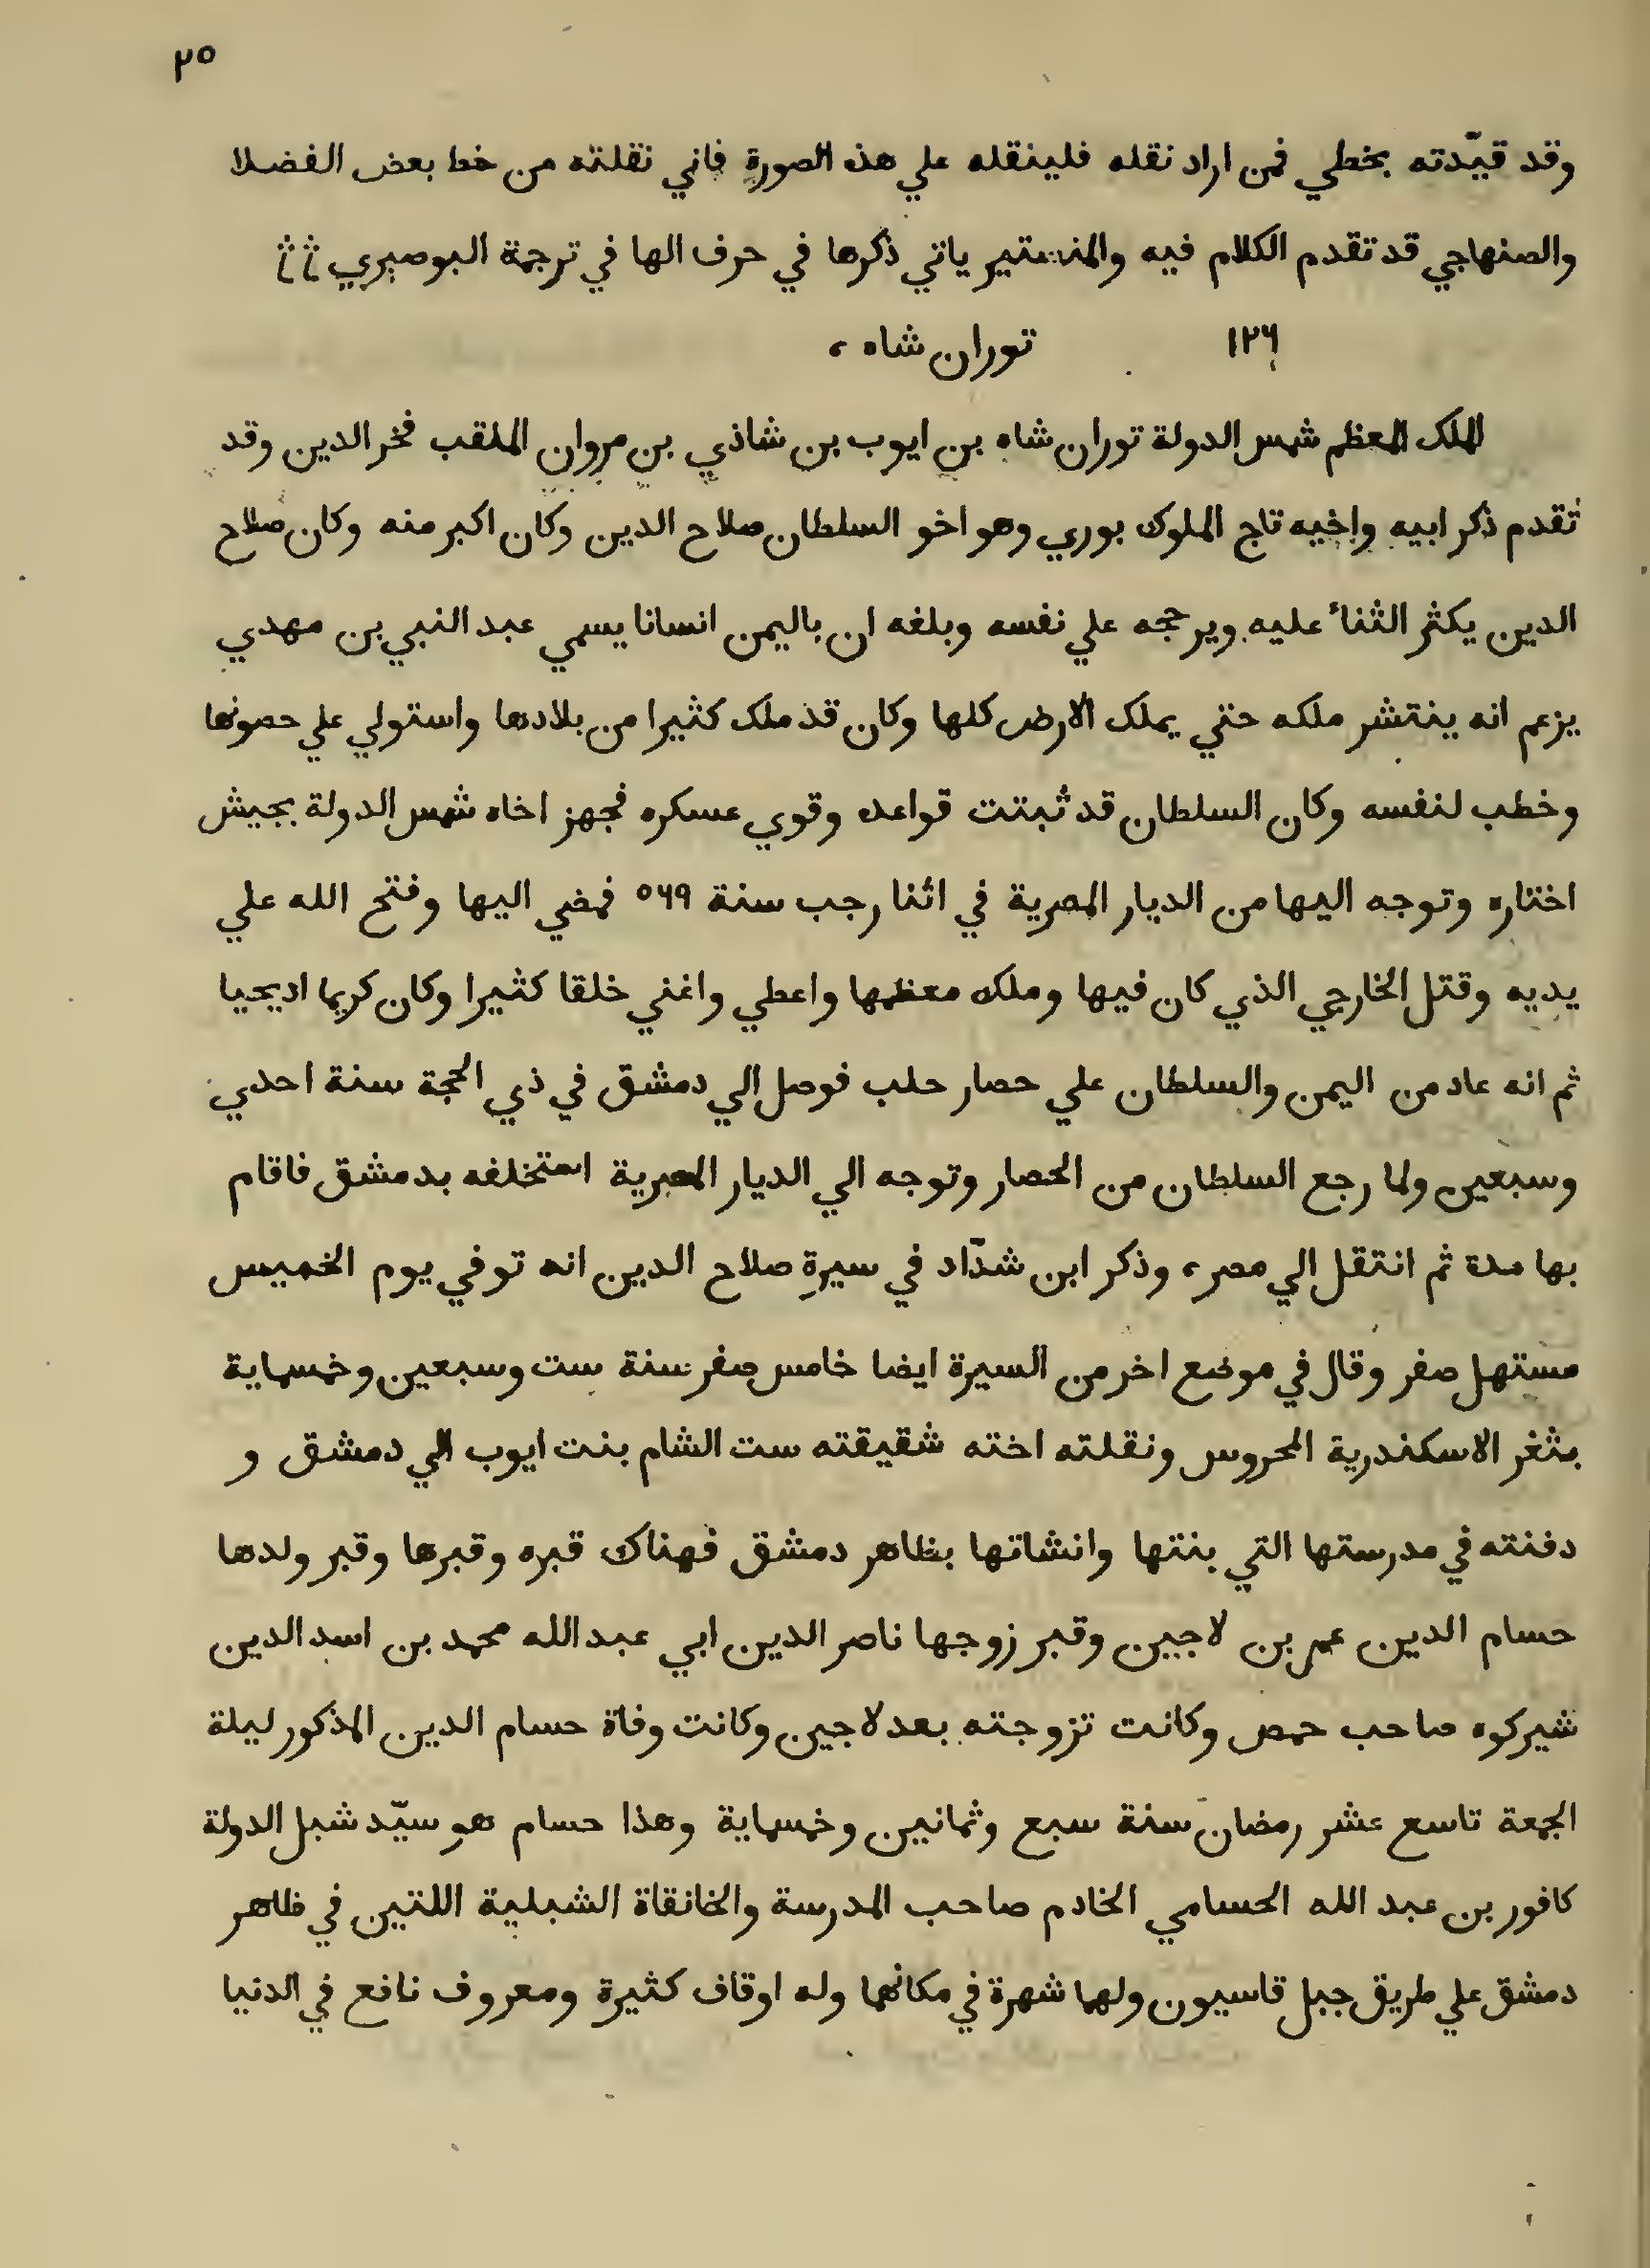 ٢٥
وقد قيّدته بخطي فمن اراد نقله فلينقله علي هذه الصورة فاني نقلته من خط بعض الفضلا
والصنهاجي قد تقدم الكلام فيه والمنستير ياتي ذكرها في حرف الها في ترجمة البوصيري
١٢٦ توران شاه ،
الملك المعظم شمس الدولة توران شاه بن ايوب بن شاذي بن مروان الملقب فخر الدين وقد
تقدم ذكر ابيه واخيه تاج الملوك بوري وهو اخو السلطان صلاح الدين وكان اكبر منه وكان صلاح
الدين يكثر الثناء عليه ويرجحه علي نفسه وبلغه ان باليمن انسانا يسمي عبد النبي بن مهدي
يزعم انه ينتشر ملكه حتي يملك الارض كلها وكان قد ملك كثيرا من بلادها واستولي علي حصونها
وخطب لنفسه وكان السلطان قد ثبتت قواعده وقوي عسكره فجهز اخاه شمس الدولة بجيش
اختاره وتوجه اليها من الديار المصرية في اثنا رجب سنة ٥٦٩ فمضي اليها وفتح الله علي
يديه وقتل الخارجي الذي كان فيها وملك معظمها واعطي واغني خلقا كثيرا وكان كريما اديحيا
ثم انه عاد من اليمن والسلطان علي حصار حلب فوصل الي دمشق في ذي الحجة سنة احدي
وسبعين ولما رجع السلطان من الحصار وتوجه الي الديار المصرية استخلفه بدمشق فاقام
بها مدة ثم انتقل الي مصر ، وذكر ابن شدّاد في سيرةِ صلاح الدين انه توفي يوم الخميس
مستهل صفر وقال في موضع اخر من السيرة ايضا خامس صفر سنة ست وسبعين وخمسماية
بثغر الاسكندرية المحروس ونقلته اخته شقيقته ست الشام بنت ايوب الي دمشق و
دفنته في مدرستها التي بنتها وانشاتها بظاهر دمشق فهناك قبره وقبرها وقبر ولدها
حسام الدين عمر بن لاجين وقبر زوجها ناصر الدين ابي عبد الله محمد بن اسد الدين
شيركوه صاحب حمص وكانت تزوجته بعد لاجين وكانت وفاة حسام الدين المذكور ليلة
الجمعة تاسع عشر رمضان سنة سبع وثمانين وخمسماية وهذا حسام هو سيّد شبل الدولة
كافور بن عبد الله الحسامي الخادم صاحب المدرسة والخانقاة الشبلية اللتين في ظاهر
دمشق علي طريق جبل قاسيون ولهما شهرة في مكانهما وله اوقاف كثيرة ومعروف نافع في الدنيا